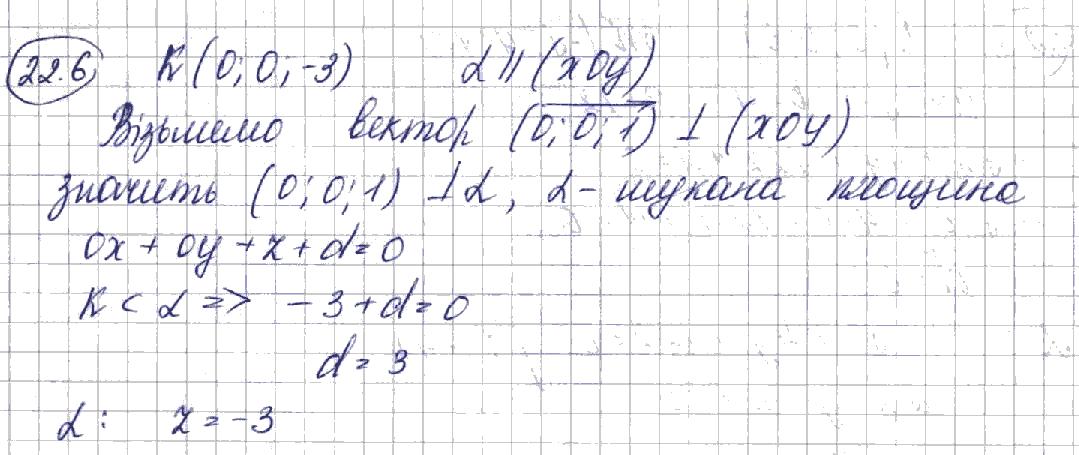 22.6 K(0; 0; -3) α || (xOy)
Візьмемо вектор (0; 0; 1) ⊥ (xOy)
значить (0; 0; 1) ⊥ α, α - шукана площина
0x + 0y + z + d = 0
K ⊂ α => -3 + d = 0
d = 3
α: z = -3